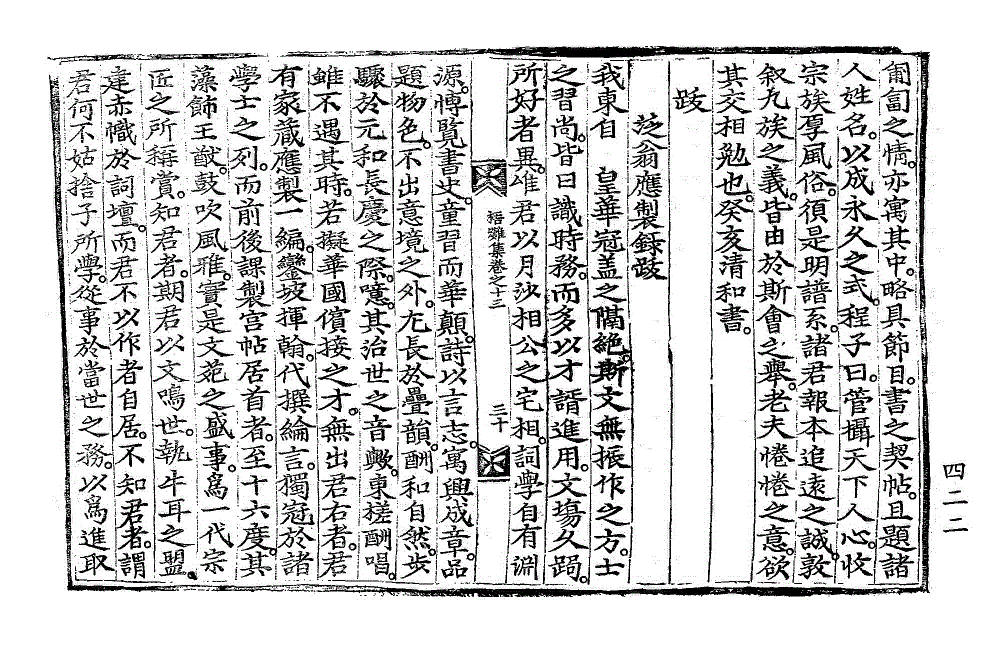 匍匐之情。亦寓其中。略具節目。書之契帖。且題諸
人姓名。以成永久之式。程子曰。管攝天下人心。收
宗族厚風俗。須是明譜系。諸君報本追遠之誠。敦
叙九族之義。皆由於斯會之擧。老夫惓惓之意。欲
其交相勉也。癸亥淸和書。
跋
泛翁應製錄跋
我東自 皇華冠盖之隔絶。斯文無振作之方。士
之習尙。皆曰識時務。而多以才諝進用。文塲久跼。
所好者異。唯君以月沙相公之宅相。詞學自有淵
梧灘集卷之十三
三十
源。博覽書史。童習而華顚。詩以言志。寓興成章。品
題物色。不出意境之外。尤長於疊韻。酬和自然。步
驟於元和長慶之際。噫。其治世之音歟。東槎酬唱。
雖不遇其時。若擬華國儐接之才。無出君右者。君
有家藏應製一編。鑾坡揮翰。代撰綸言。獨冠於諸
學士之列。而前後課製宮帖居首者。至十六度。其
藻飾王猷。鼓吹風雅。實是文苑之盛事。爲一代宗
匠之所稱賞。知君者。期君以文鳴世。執牛耳之盟。
建赤幟於詞壇。而君不以作者自居。不知君者。謂
君何不姑捨子所學。從事於當世之務。以爲進取
四二二